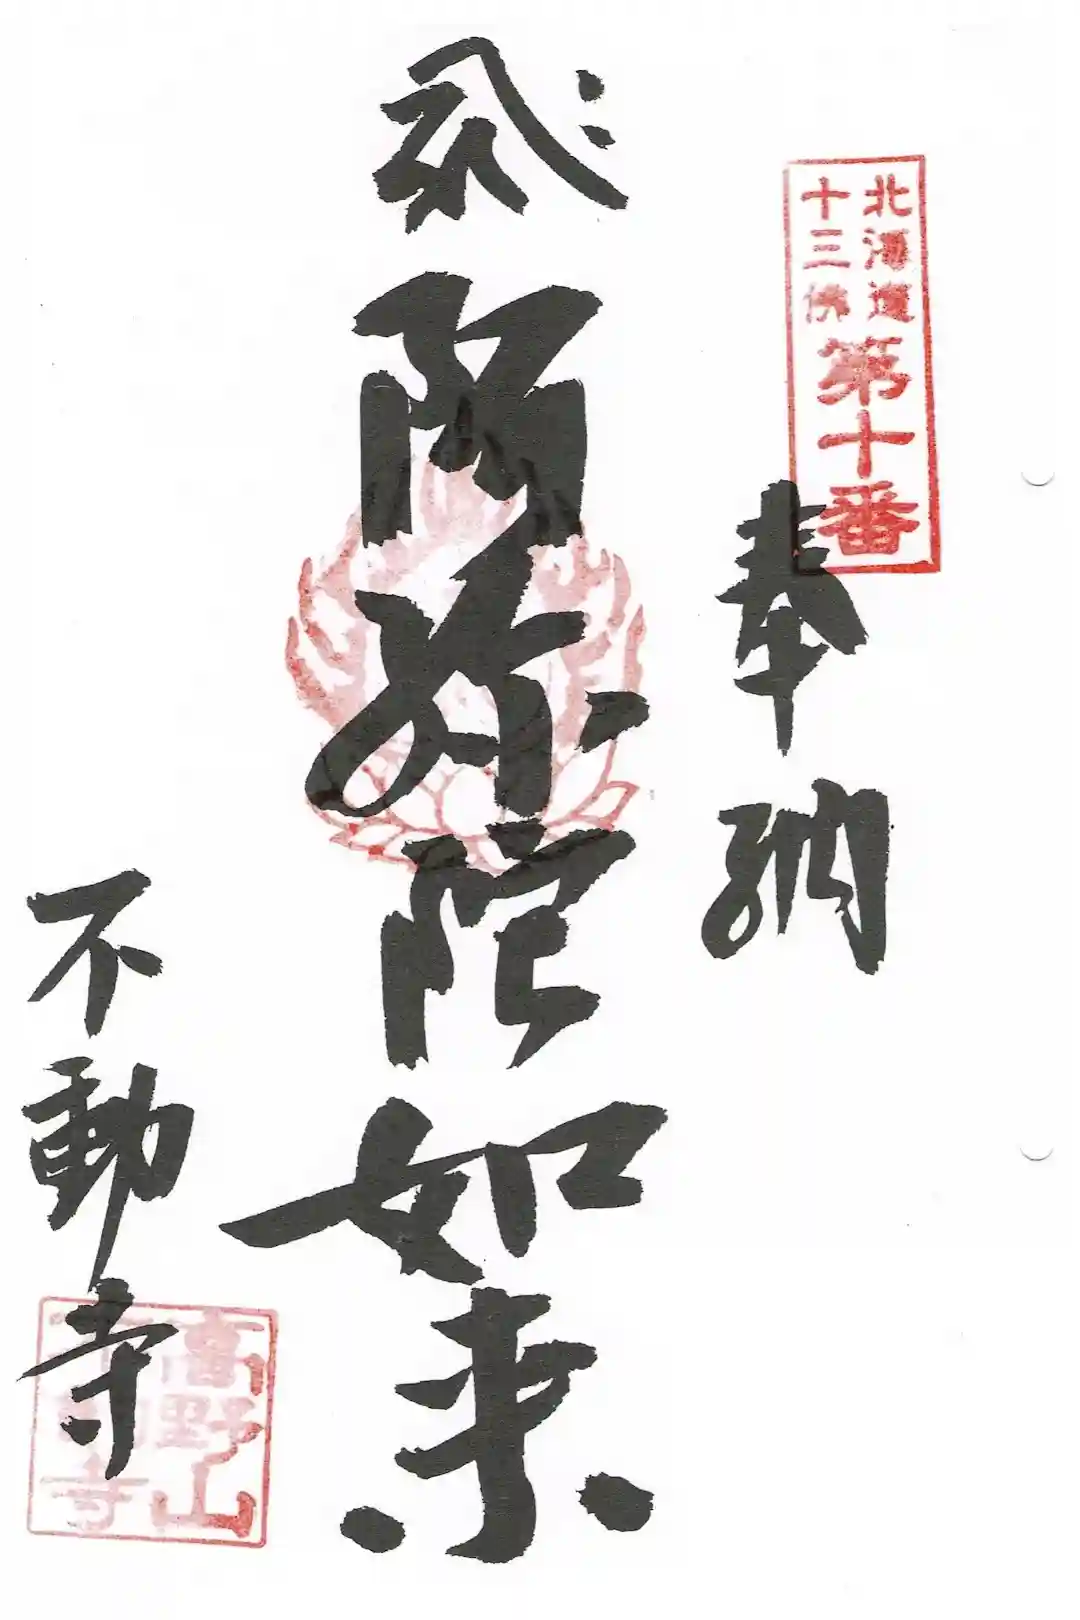 北海道
十三佛
第十番
奉納
阿弥陀如来
不動寺
高野山
不動寺